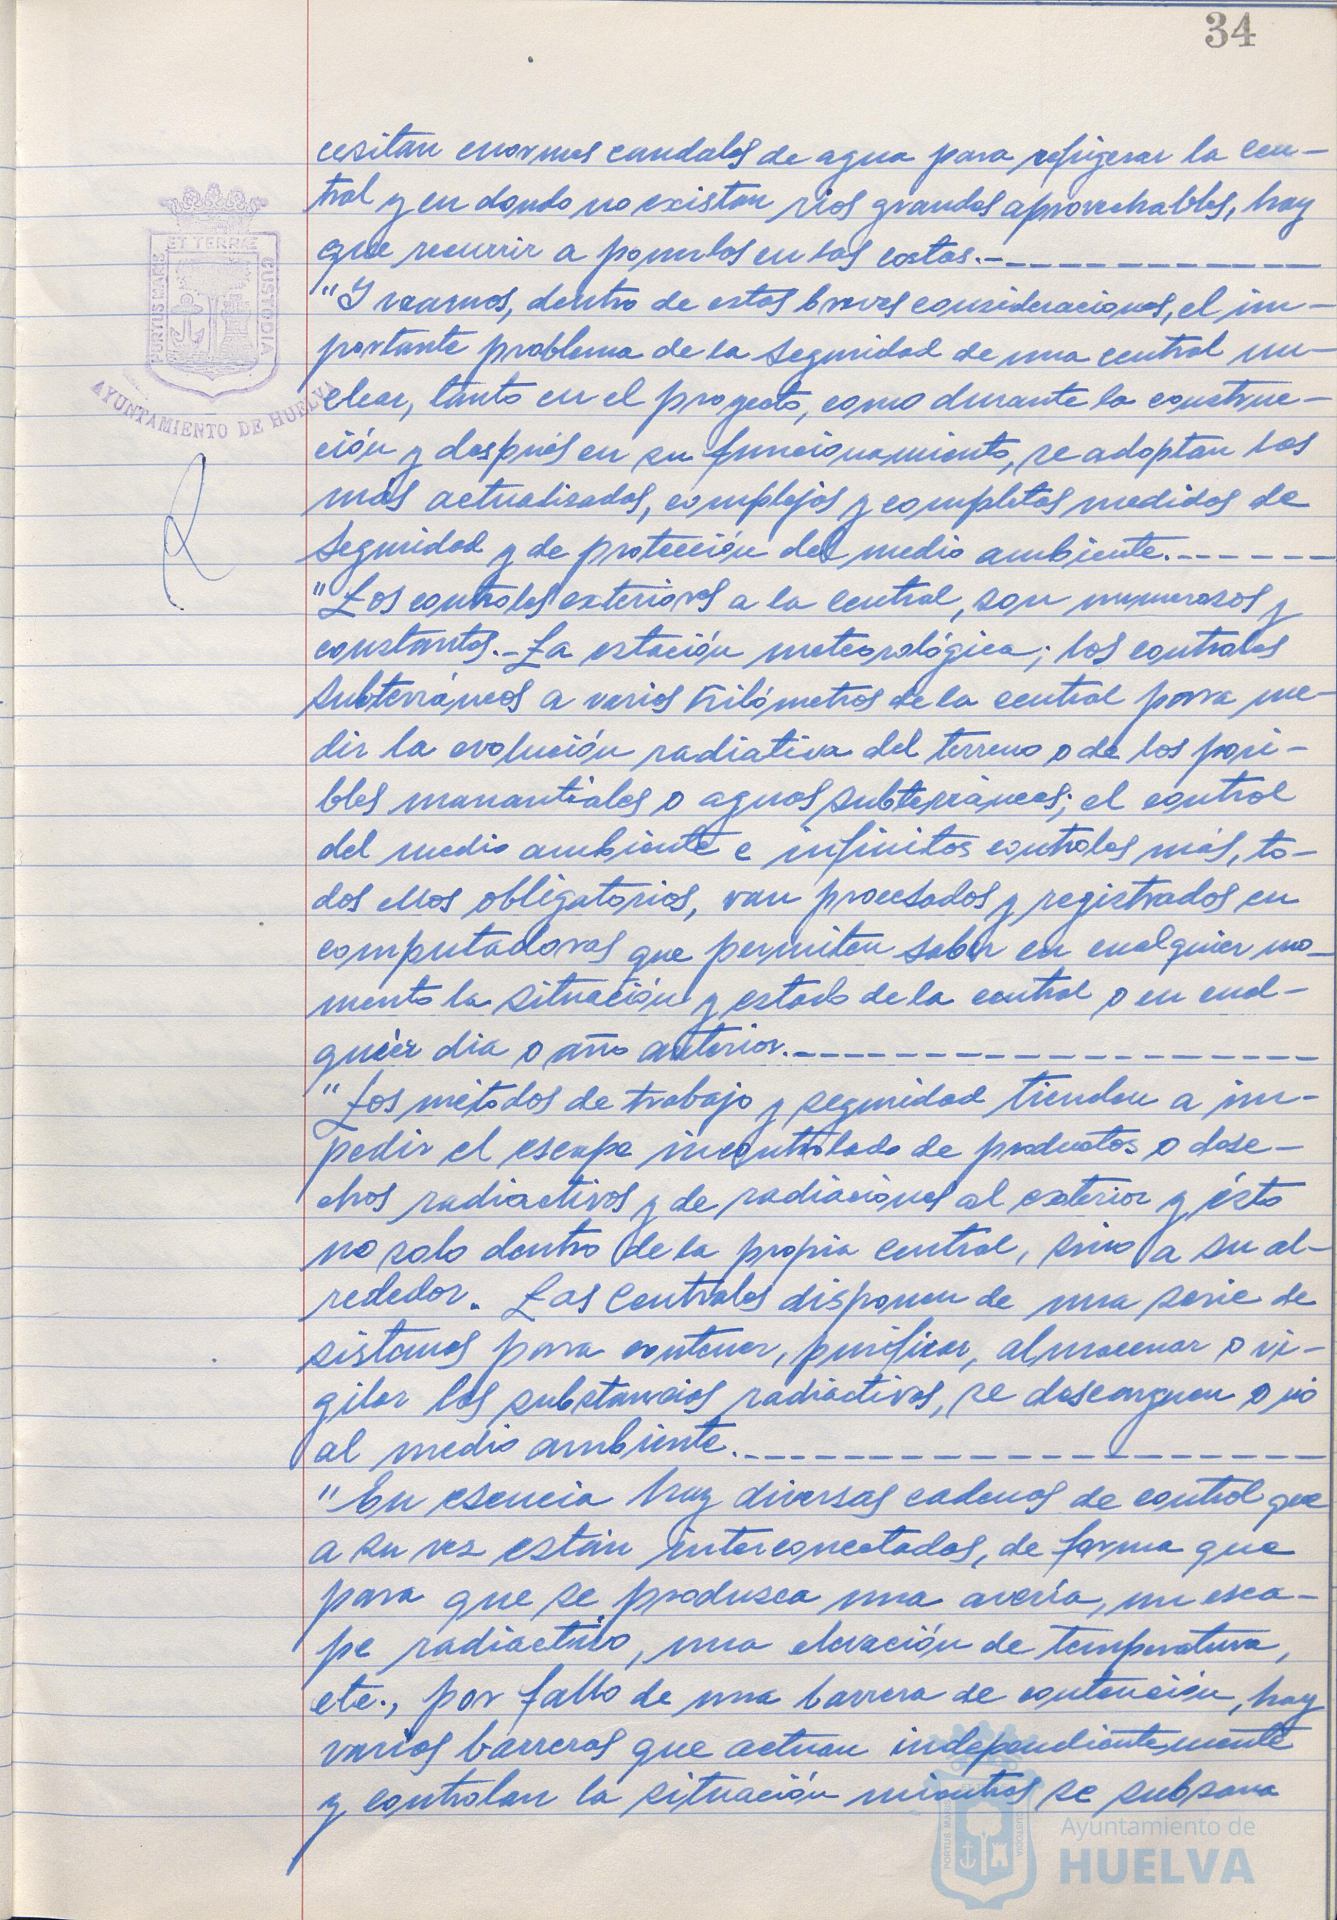 34
cesitan enormes caudales de agua para refrigerar la cen-
tral y en donde no existan rios grandes aprovechables, hay
que recurrir a ponerlas en las costas.-
"Y veamos, dentro de estas breves consideraciones, el im-
portante problema de la seguridad de una central nu-
clear, tanto en el proyecto, como durante la construc-
ción y después en su funcionamiento, se adoptan las
más actualizadas, complejas y completas medidas de
seguridad y de protección del medio ambiente.-
"Los controles exteriores a la central, son numerosos y
constantes.- La estación meteorológica; los controles
subterráneos a varios kilómetros de la central para me-
dir la evolución radiativa del terreno o de los posi-
bles manantiales o aguas subterráneas; el control
del medio ambiente e infinitos controles más, to-
dos ellos obligatorios, van procesados y registrados en
computadoras que permiten saber en cualquier mo-
mento la situación y estado de la central o en cual-
quier dia o año anterior.-
"Los métodos de trabajo y seguridad tienden a im-
pedir el escape incontrolado de productos o dese-
chos radiactivos y de radiaciones al exterior y ésto
no solo dentro de la propia central, sino a su al-
rededor. Las Centrales disponen de una serie de
sistemas para contener, purificar, almacenar o vi-
gilar las substancias radiactivas, se descarguen o nó
al medio ambiente.-
"En esencia hay diversas cadenas de control que
a su vez están interconectadas, de forma que
para que se produzca una avería, un esca-
pe radiactivo, una elevación de temperatura,
etc., por fallo de una barrera de contención, hay
varias barreras que actuan independientemente
y controlan la situación mientras se subsana
PORTUS MARIS ET TERRAE CUSTODIA
AYUNTAMIENTO DE HUELVA
Ayuntamiento de
HUELVA